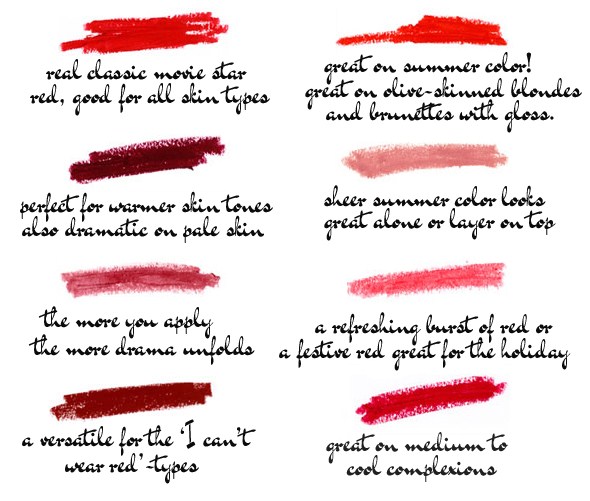 real classic movie star
red, good for all skin types
great on summer color!
great on olive-skinned blondes
and brunettes with gloss.
perfect for warmer skin tones
also dramatic on pale skin
sheer summer color looks
great alone or layer on top
the more you apply
the more drama unfolds
a refreshing burst of red or
a festive red great for the holiday
a versatile for the 'I can't
wear red'-types
great on medium to
cool complexions